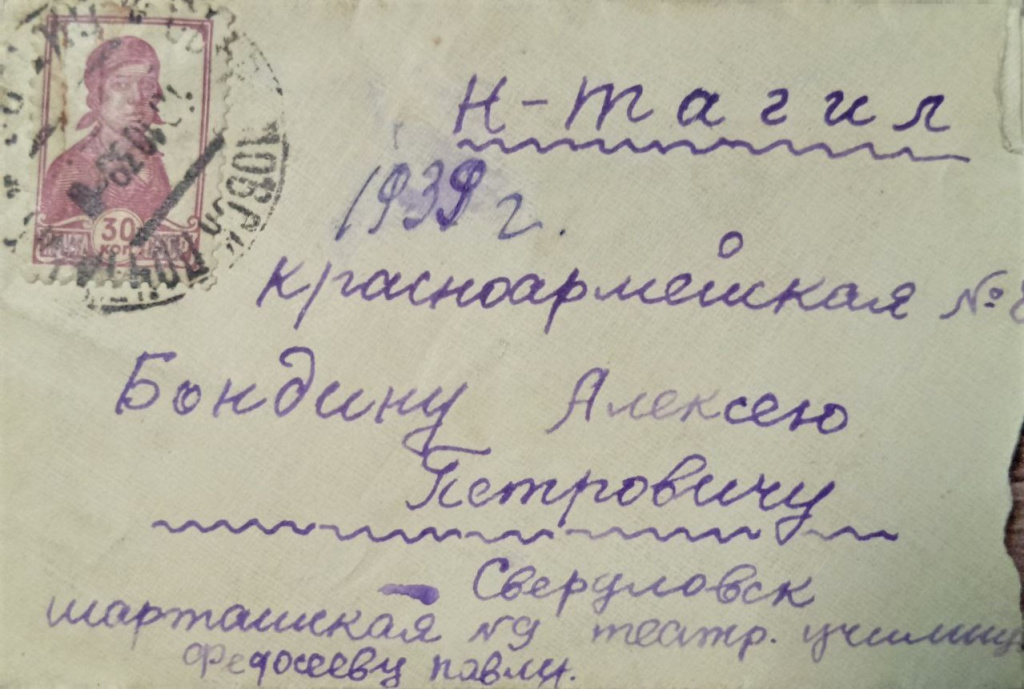 30
КОП
Н-Тагил
1939 г.
Красноармейская №
Бондину Алексею
Петровичу
Свердловск
шарташская №9 театр. училищ
Федосеевц павлу.